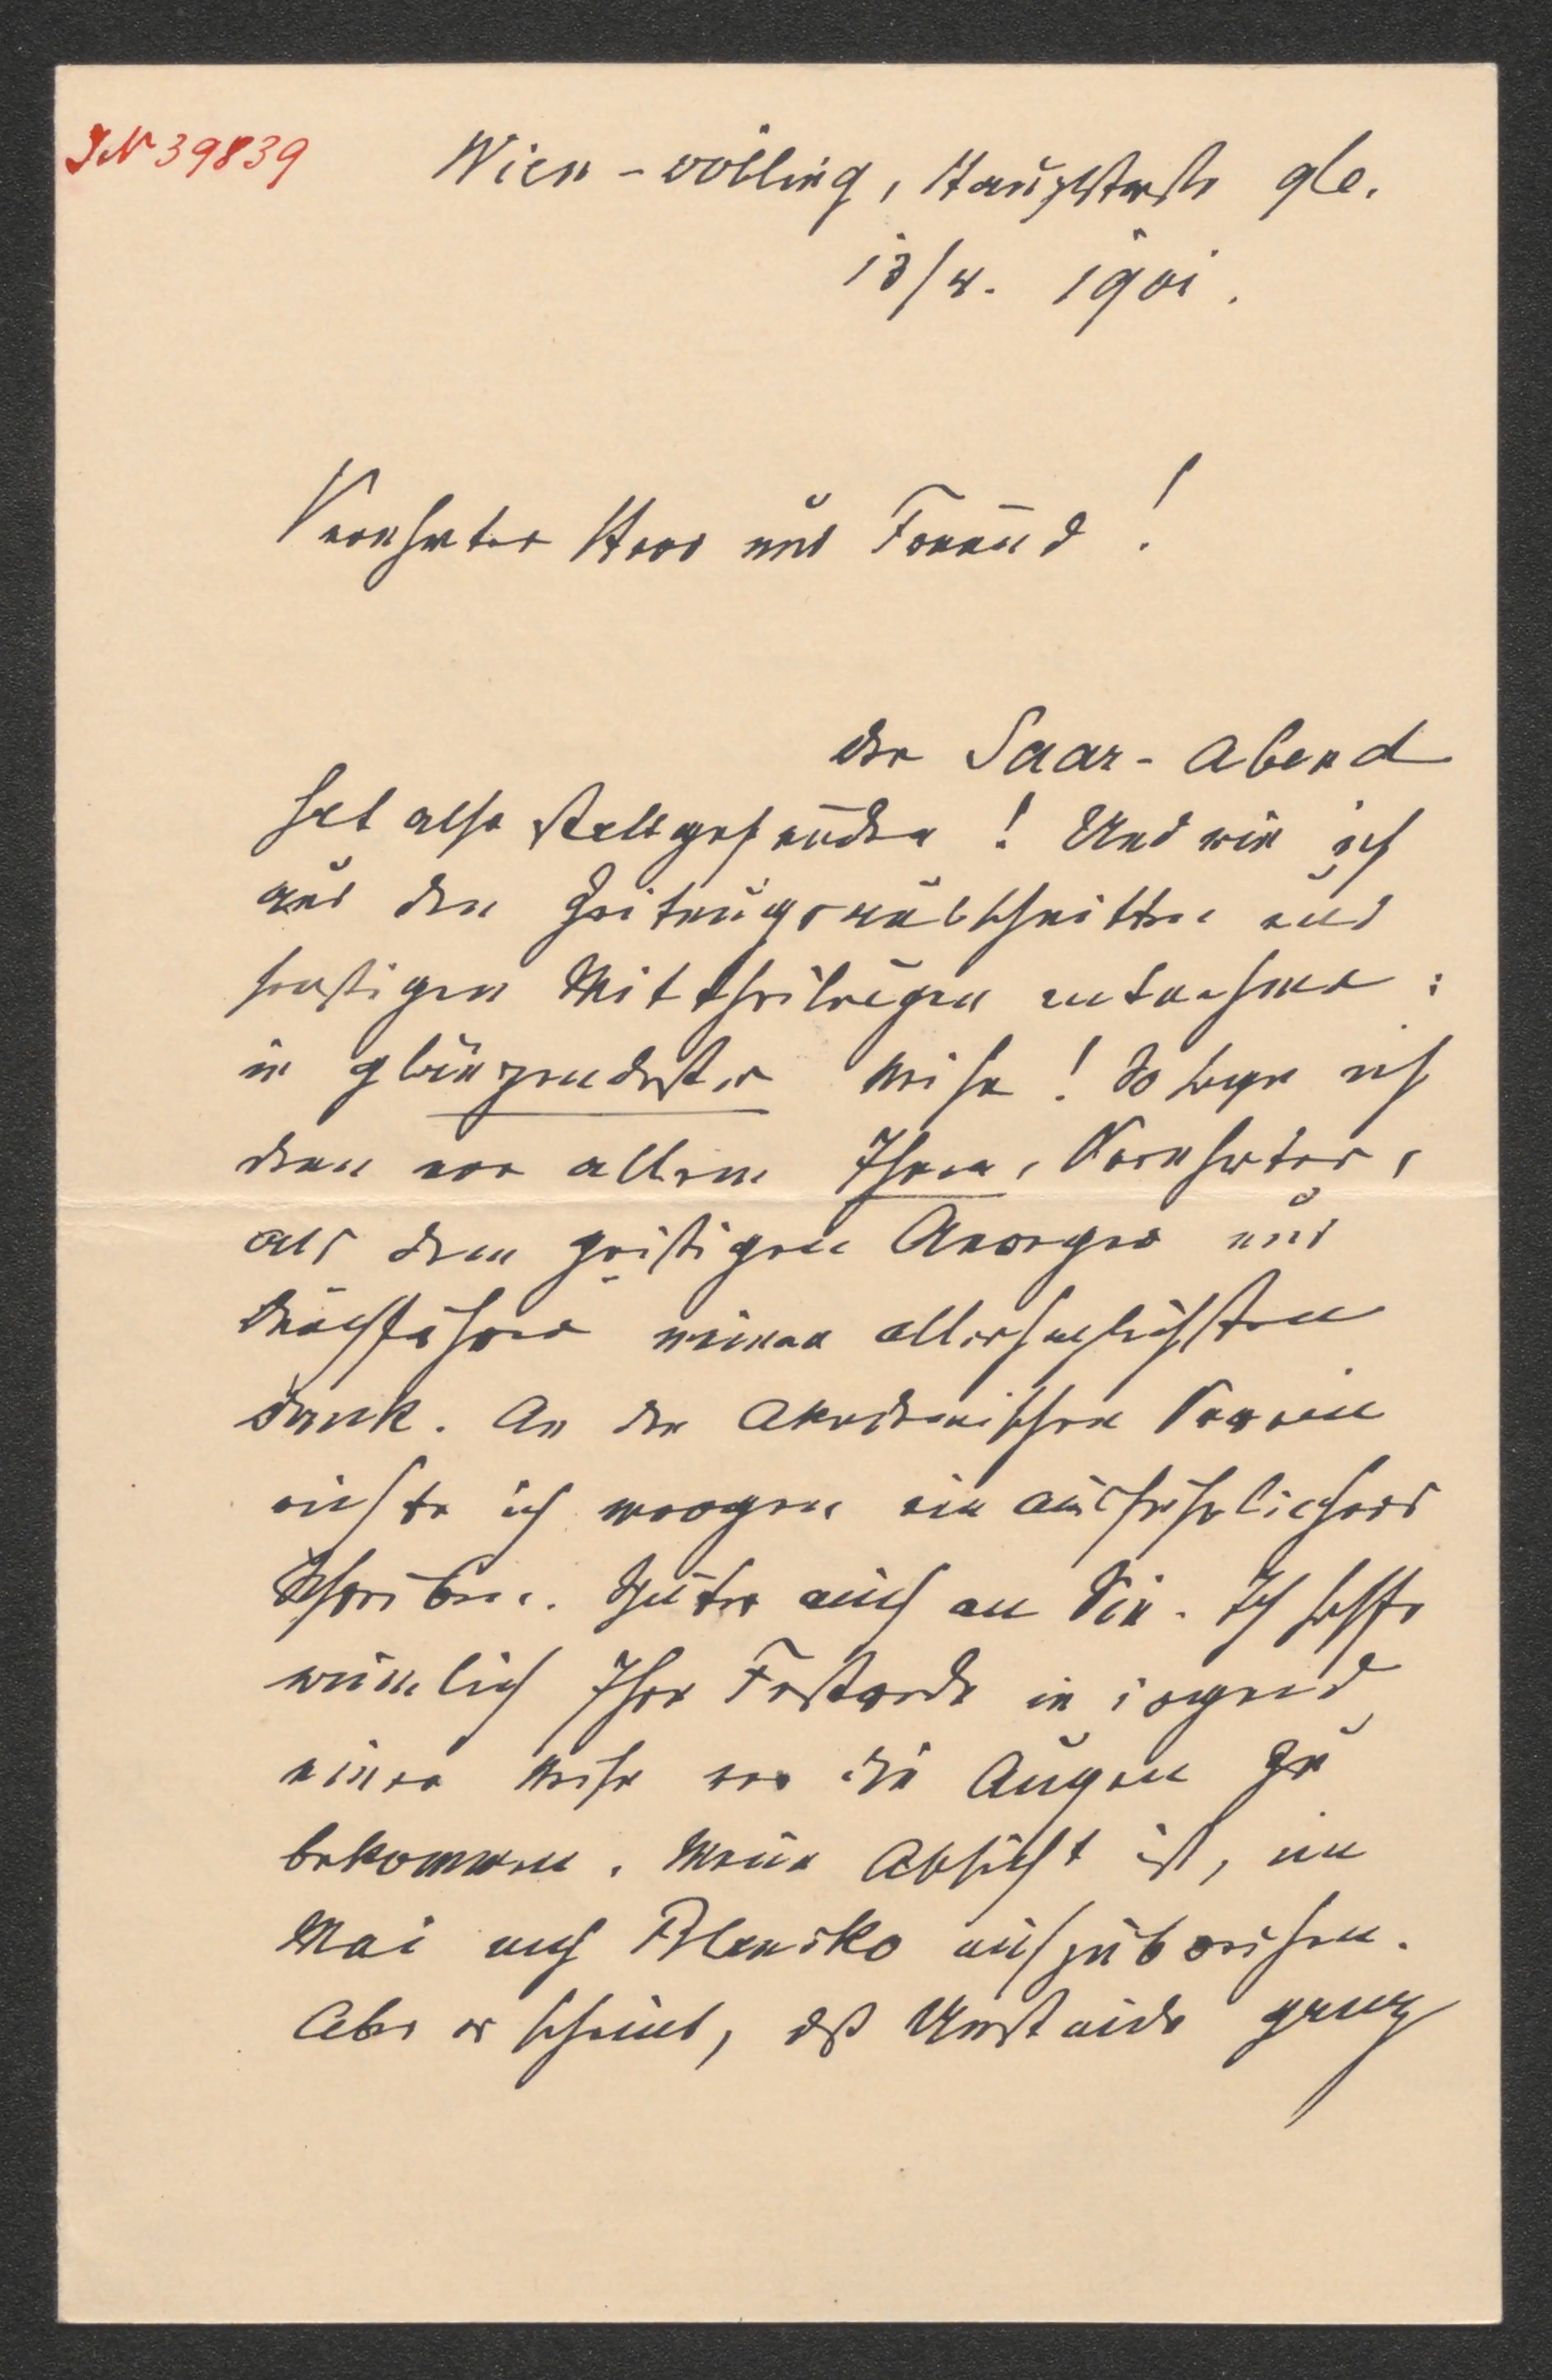 JN 39839
Wien - Döbling, Hauptstraße 96.
13/4. 1901.
Verehrter Herr und Freund!
Der Saar-Abend
hat also stattgefunden! Und wie ich
aus den Zeitungsausschnitten und
sonstigen Mittheilungen entnehme:
in glänzendster Weise! So sage ich
denn vor allem Ihnen, Verehrter,
als dem geistigen Anreger und
Durchführer meinen allerherzlichsten
Dank. An den Akademischen Verein
richte ich morgen ein ausführlicheres
Schreiben. Später auch an Sie. Ich hoffe
nämlich Ihre Festrede in irgend
einer Weise vor die Augen zu
bekommen. Meine Absicht ist, im
Mai nach Blansko aufzubrechen.
Aber es scheint, daß Umstände ganz